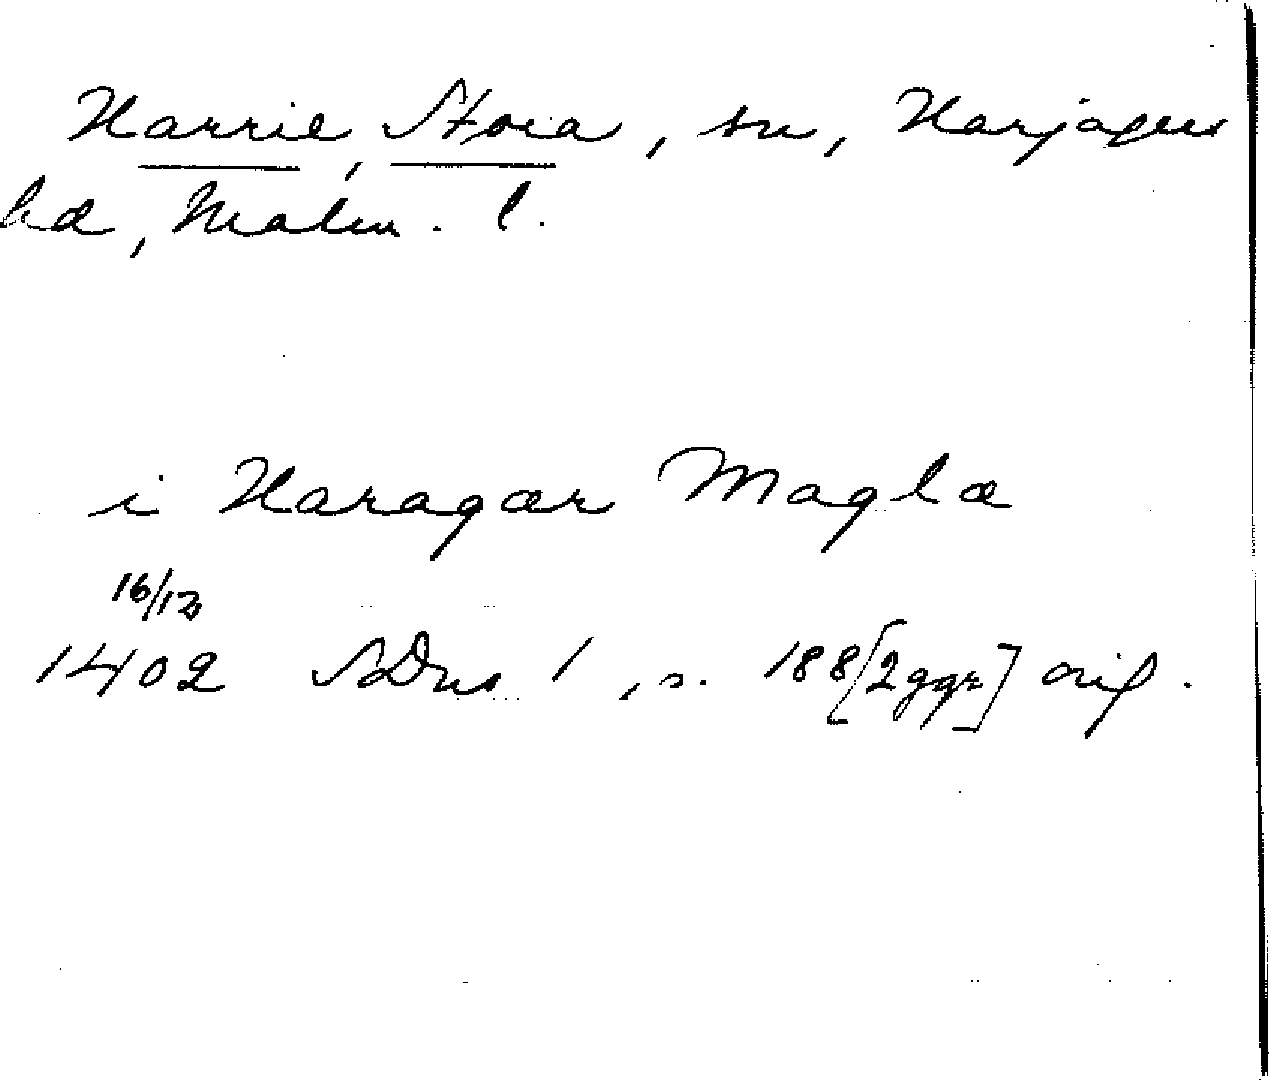 Harrie, Stora, sn, Harjagers
hd, Malm. l.
i Haragær Maglæ
16/12
1402 SDns 1, s. 188 [2 ggr] orig.